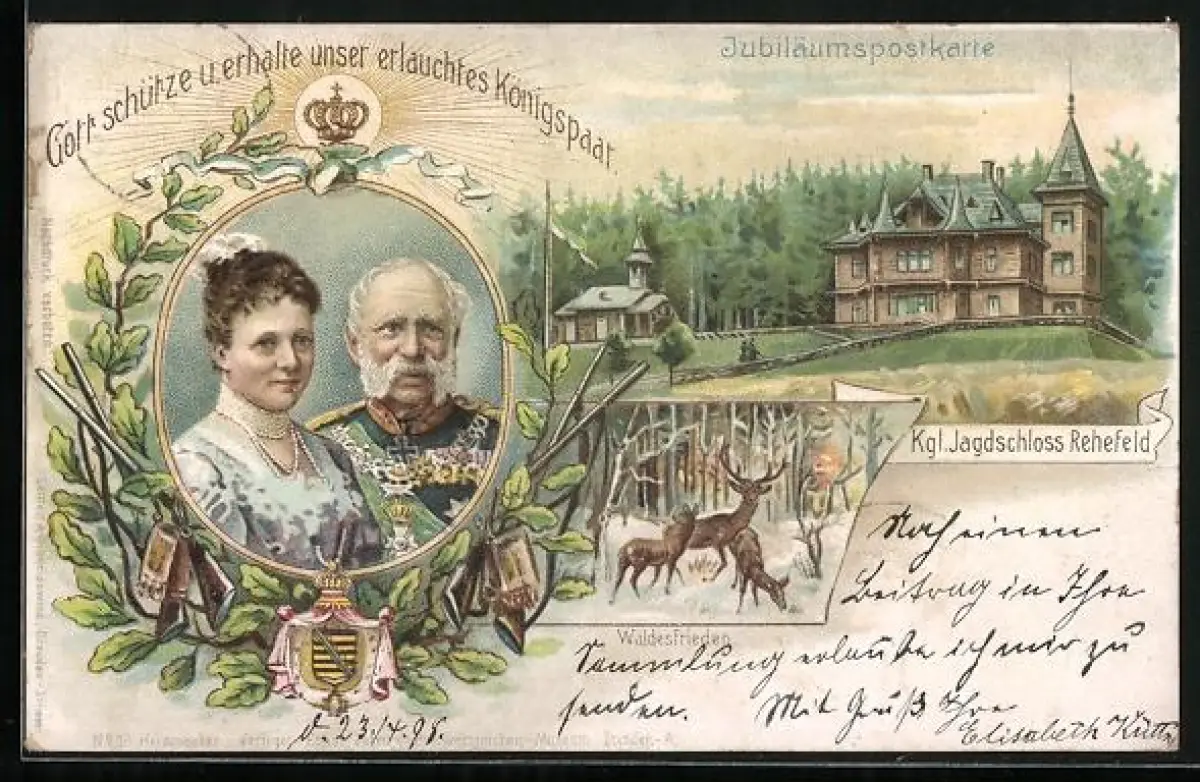 Gott schütze u. erhalte unser erlauchtes Königspaar
Jubiläumspostkarte
Kgl. Jagdschloss Rehefeld
Waldesfrieden
Noch einen
Beitrag in Ihre
Sammlung erlaube ich mir zu
senden. Mit Gruß Ihre
Elisabeth
d. 23/4. 98.